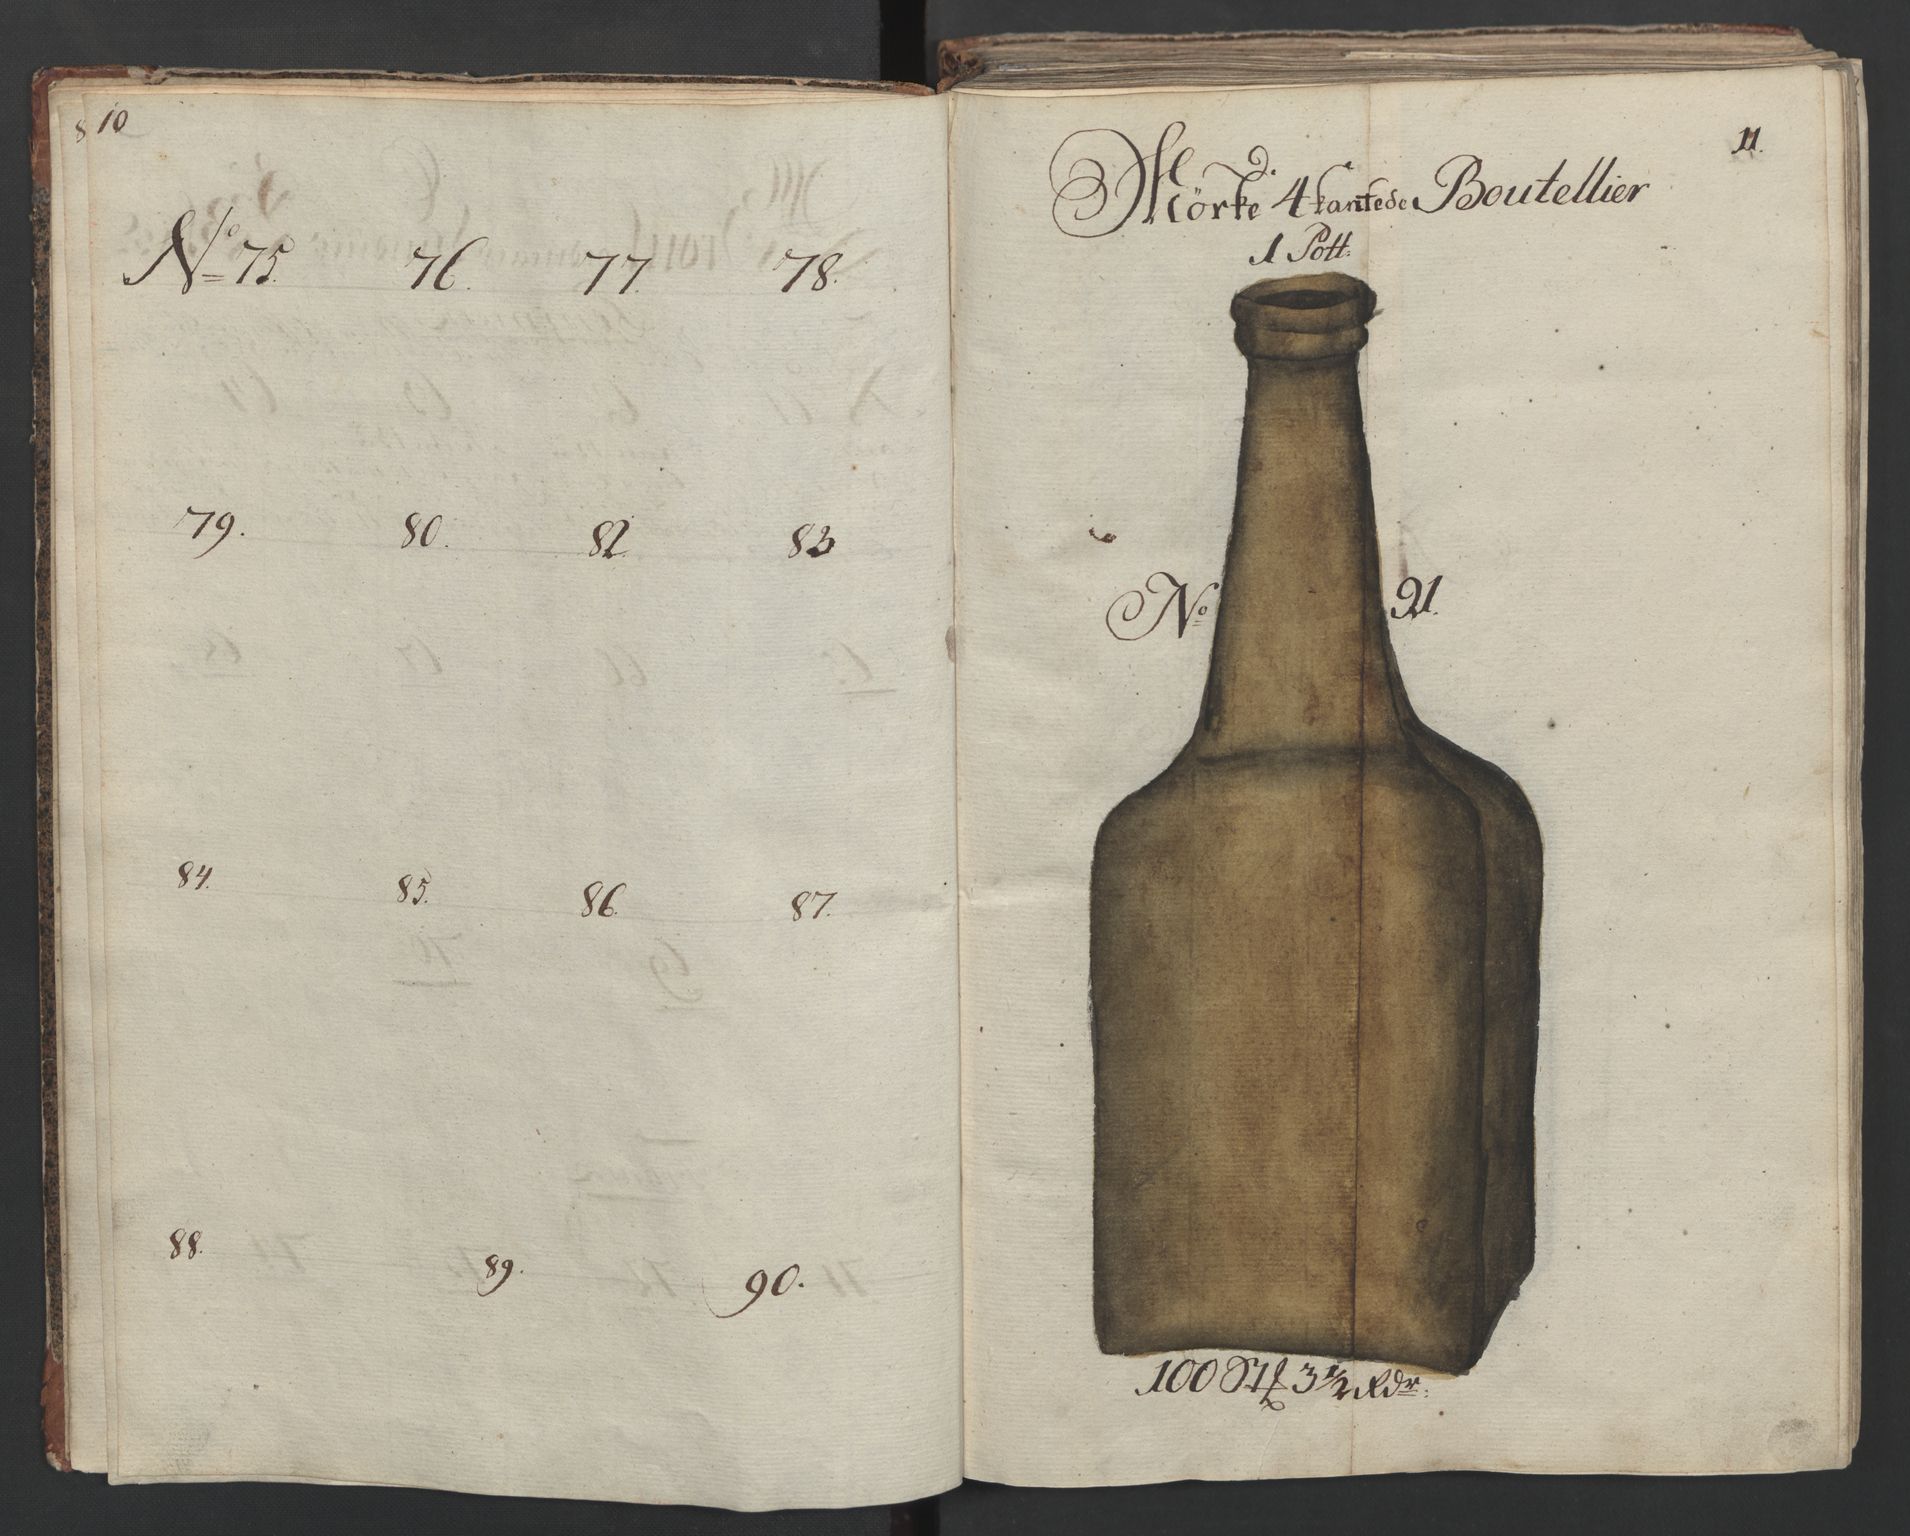 10
No 75. 76. 77. 78.
79. 80. 82. 83
84. 85. 86. 87.
88. 89. 90.
11.
Mörke 4kantede Boutellier
1 Pott.
No 91.
100 Stk 3 1/2 Rdr.